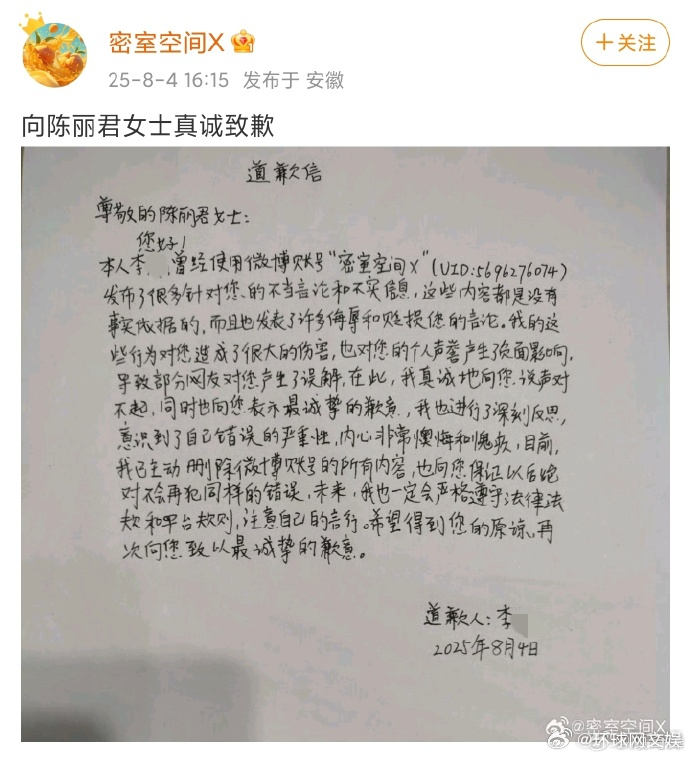 密室空间X
+关注
25-8-4 16:15 发布于 安徽
向陈丽君女士真诚致歉
道歉信
尊敬的陈丽君女士:
您好!
本人李 曾经使用微博账号"密室空间X"(UID:5696276074)
发布了很多针对您的不当言论和不实信息,这些内容都是没有
事实依据的,而且也发表了许多侮辱和贬损您的言论。我的这
些行为对您造成了很大的伤害,也对您的个人声誉产生了负面影响,
导致部分网友对您产生了误解,在此,我真诚地向您说声对
不起,同时也向您表示最诚挚的歉意,我也进行了深刻反思,
意识到了自己错误的严重性,内心非常懊悔和愧疚,目前,
我已主动删除微博账号的所有内容,也向您保证以后绝
对不会再犯同样的错误,未来,我也一定会严格遵守法律法
规和平台规则,注意自己的言行。希望得到您的原谅,再
次向您致以最诚挚的歉意。
道歉人:李
2025年8月4日
@密室空间X
@环球网文娱